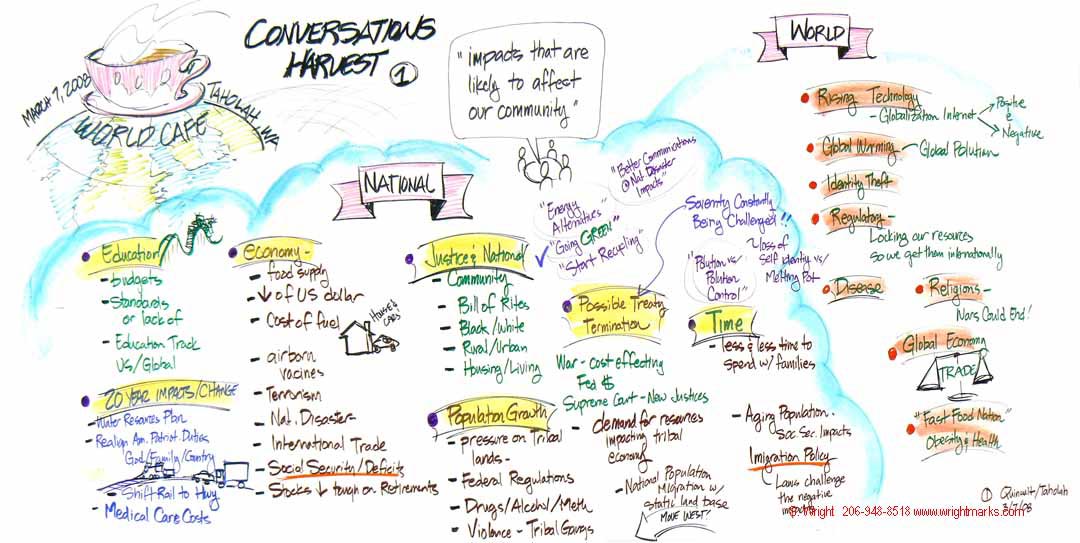 CONVERSATIONS
HARVEST ①
MARCH 7, 2008
TAHOLAH, WA
WORLD CAFE
"impacts that are
likely to affect
our community"
NATIONAL
WORLD
Education
- budgets
- Standards
or lack of
- Education Track
US/Global
20 YEAR IMPACTS/CHANGE
- Water Resources Plan
- Realign Am. Patriot. Duties
God/Family/Country
- Shift Rail to Hwy
- Medical Care Costs
Economy -
- food supply
- ↓ of US dollar
- Cost of fuel
HOUSES
CARS!
- airborn
vacines
- Terrorism
- Nat. Disasters
- International Trade
- Social Security/Deficits
- Stocks ↓ tough on Retirements
Justice & National
- Community
- Bill of Rites
- Black/White
- Rural/Urban
- Housing/Living
Population Growth
- pressure on Tribal
lands -
- Federal Regulations
- Drugs/Alcohol/Meth
- Violence - Tribal Gangs
"Better Communications
@ Nat. Disaster
Impacts"
"Energy
Alternatives"
"Going GREEN"
"Start Recycling"
Soverenty Constantly
Being Challenged!!
"Polution vs/
Polution
Control"
? loss of
Self Identity vs/
Melting Pot
Possible Treaty
Termination
War - cost effecting
Fed $
Supreme Court - New Justices
- demand for resources
impacting tribal
economy
- National Population
Migration w/
static land base
MOVE WEST!
Time
- less & less time to
spend w/ families
- Aging Population.
Soc. Sec. Impacts
Imigration Policy
Laws challenge
the negative
impacts
Rising Technology
- Globalization Internet
Positive
&
Negative
Global Warming
Global Polution
Identity Theft
Regulatory -
Locking our resources
so we get them internationally
Disease
Religions -
Wars Could End!
Global Economy
TRADE
"Fast Food Nation"
Obesity & Health
① Quinault/Taholah
3/7/08
Wright 206-948-8518 www.wrightmarks.com